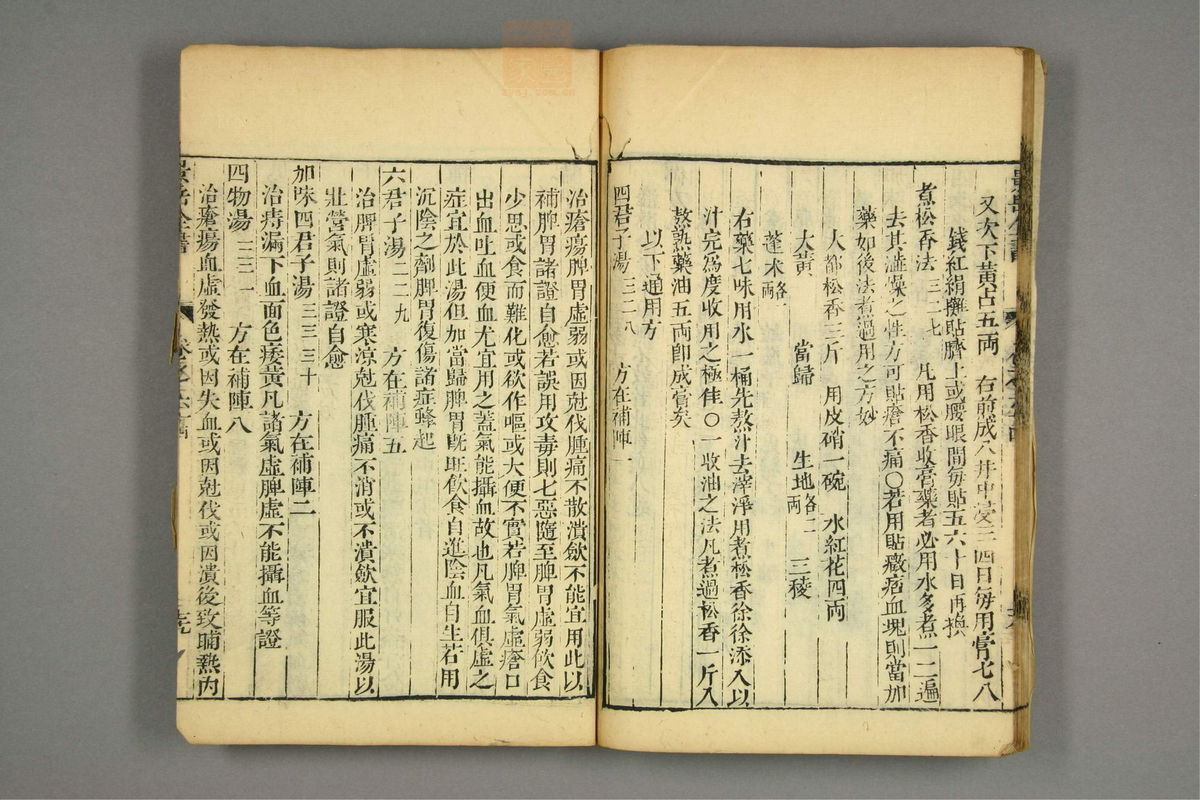 又次下黃占五兩　右前成膏入井中浸三四日每用膏七八
錢紅絹攤貼臍上或腰眼間每貼五六十日再換
煮松香法　三二七　凡用松香收膏藥者必用水多煮一二遍
去其澁燥之性方可貼瘡不痛○若用貼癥痞血塊則當加
藥如後法煮過用之方妙
大都松香三斤　用皮硝一碗　水紅花四兩
大黃　當歸　生地各二兩　三稜
蓬朮各兩
右藥七味用水一桶先熬汁去滓淨用煮松香徐徐添入以
汁完爲度收用之極佳○一收油之法凡煮過松香一斤入
熬熟藥油五兩卽成膏矣
以下通用方
四君子湯　三二八　方在補陣一
治瘡瘍脾胃虛弱或因尅伐腫痛不散潰斂不能宜用此以
補脾胃諸證自愈若誤用攻毒則七惡隨至脾胃虛弱飲食
少思或食而難化或欲作嘔或大便不實若脾胃氣虛瘡口
出血吐血便血尤宜用之蓋氣能攝血故也凡氣血俱虛之
症宜於此湯但加當歸脾胃旣旺飲食自進陰血自生若用
沉陰之劑脾胃復傷諸症蜂起
六君子湯　二二九　方在補陣五
治脾胃虛弱或寒涼尅伐腫痛不消或不潰斂宜服此湯以
壯營氣則諸證自愈
加味四君子湯　三三十　方在補陣二
治痔漏下血面色痿黃凡諸氣虛脾虛不能攝血等證
四物湯　三三一　方在補陣八
治瘡瘍血虛發熱或因失血或因尅伐或因潰後致晡熱內
景岳全書　卷之六十四